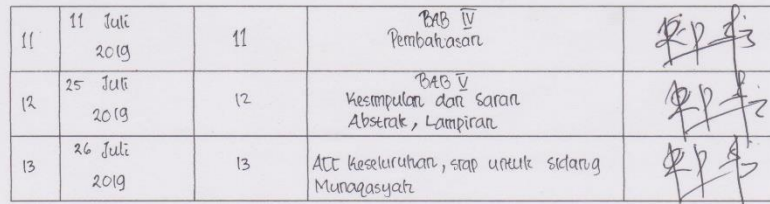 11 11 Juli 2019 11 BAB IV
Pembahasan
12 25 Juli 2019 12 BAB V
Kesimpulan dan Saran
Abstrak, Lampiran
13 26 Juli 2019 13 ACC Keseluruhan, siap untuk sidang
Munaqasyah